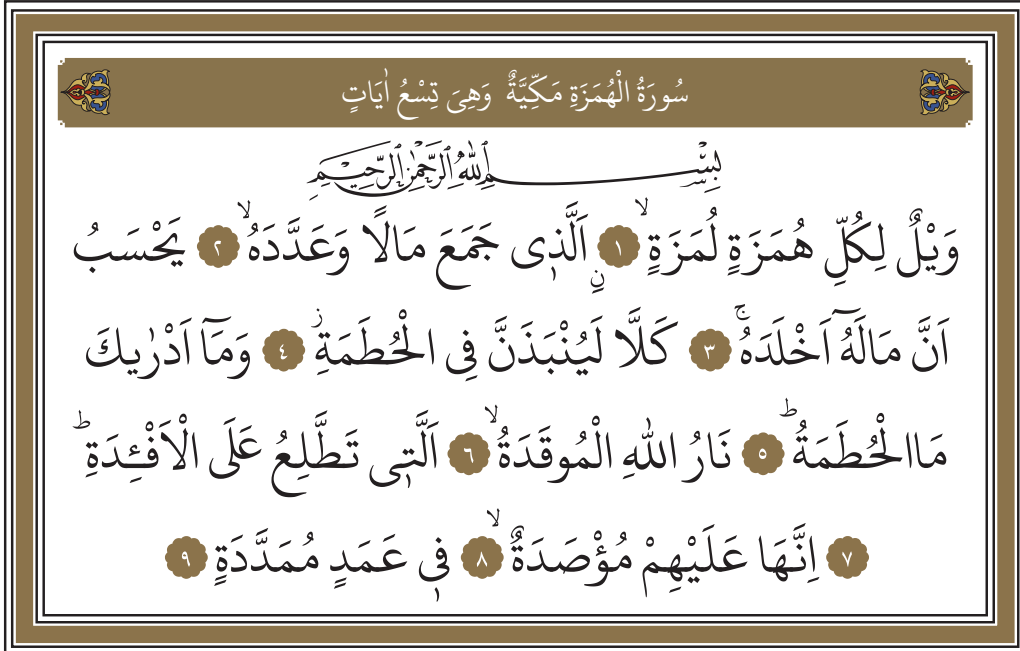 سُورَةُ الْهُمَزَةِ مَكِّيَّةٌ وَهِىَ تِسْعُ اٰيَاتٍ
بِسْمِ اللّٰهِ الرَّحْمٰنِ الرَّحِيمِ
وَيْلٌ لِكُلِّ هُمَزَةٍ لُمَزَةٍۙ ﴿١﴾ اَلَّذ۪ى جَمَعَ مَالًا وَعَدَّدَهُۙ ﴿٢﴾ يَحْسَبُ
اَنَّ مَالَهُٓ اَخْلَدَهُۚ ﴿٣﴾ كَلَّا لَيُنْبَذَنَّ فِى الْحُطَمَةِۘ ﴿٤﴾ وَمَٓا اَدْرٰيكَ
مَاالْحُطَمَةُۜ ﴿٥﴾ نَارُ اللّٰهِ الْمُوقَدَةُۙ ﴿٦﴾ اَلَّت۪ى تَطَّلِعُ عَلَى الْاَفْـِٔدَةِۜ
﴿٧﴾ اِنَّهَا عَلَيْهِمْ مُؤْصَدَةٌۙ ﴿٨﴾ ف۪ى عَمَدٍ مُمَدَّدَةٍ ﴿٩﴾